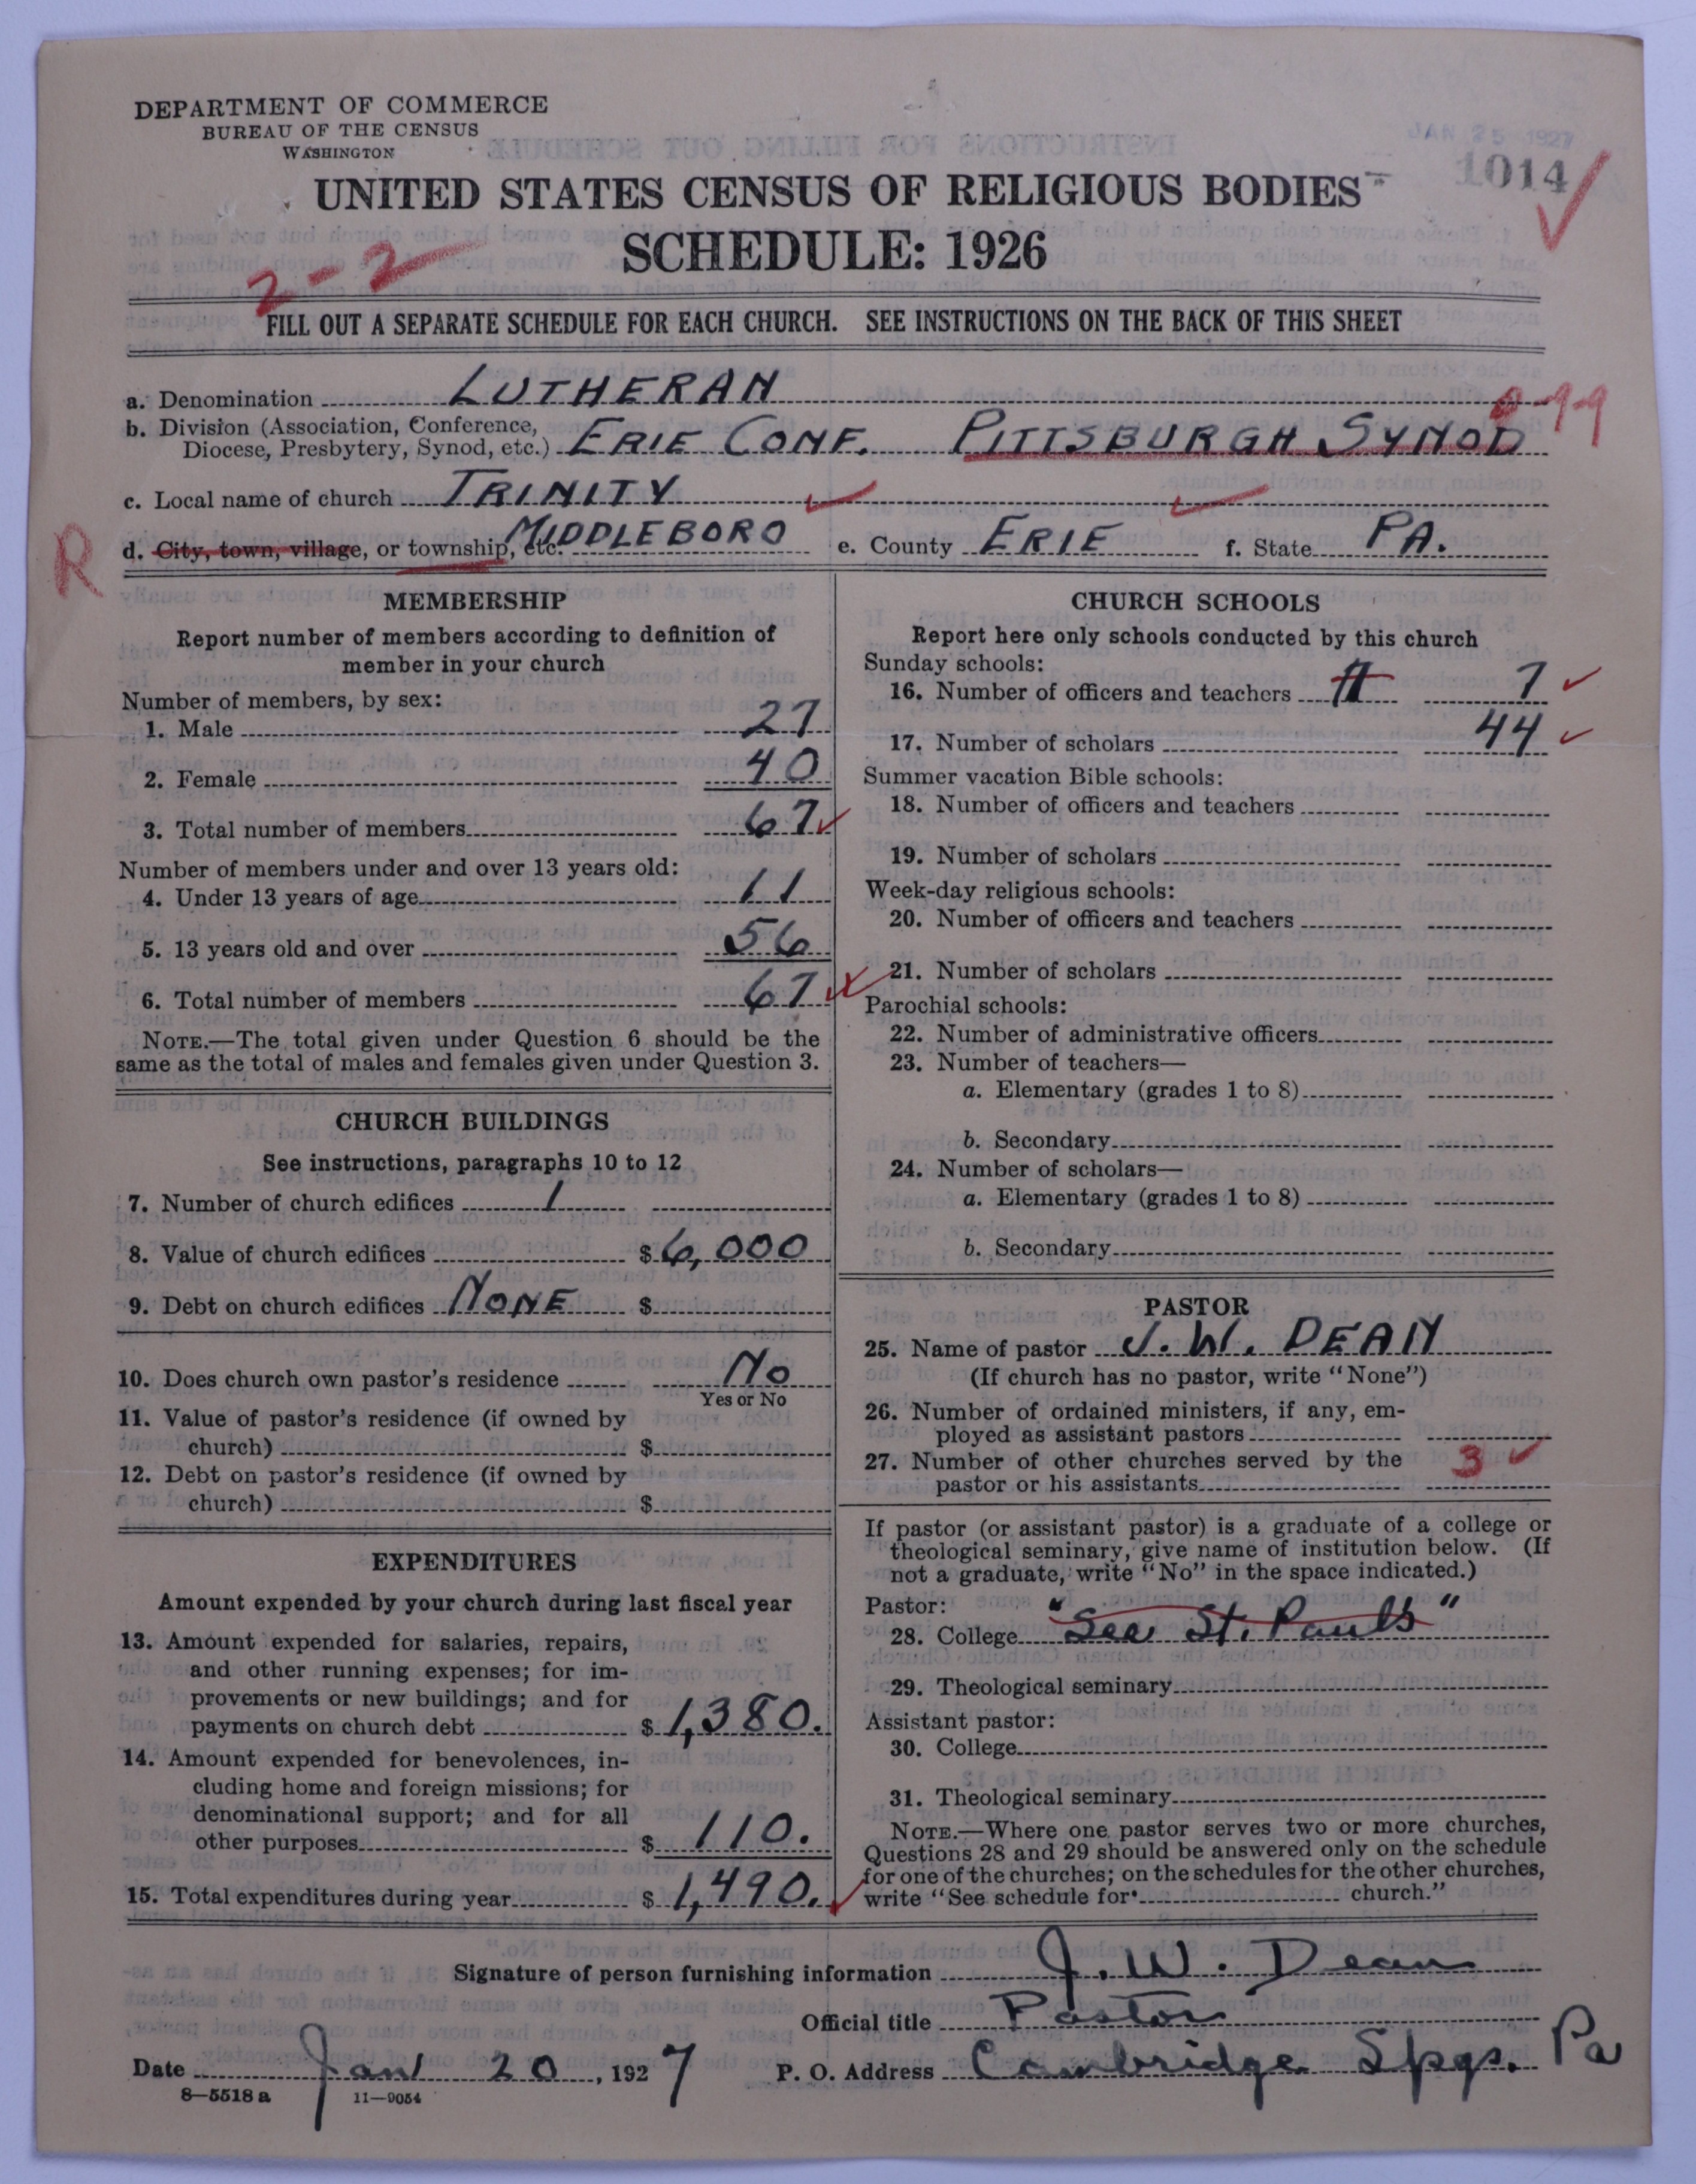 DEPARTMENT OF COMMERCE
BUREAU OF THE CENSUS
WASHINGTON
JAN 25 1927
1014
UNITED STATES CENSUS OF RELIGIOUS BODIES
SCHEDULE: 1926
2-2
FILL OUT A SEPARATE SCHEDULE FOR EACH CHURCH. SEE INSTRUCTIONS ON THE BACK OF THIS SHEET
a. Denomination LUTHERAN
0-9-9
b. Division (Association, Conference,
Diocese, Presbytery, Synod, etc.) ERIE CONF. PITTSBURGH SYNOD
c. Local name of church TRINITY
R
d. City, town, village, or township, etc. MIDDLEBORO e. County ERIE f. State PA.
MEMBERSHIP
Report number of members according to definition of
member in your church
Number of members, by sex:
1. Male 27
2. Female 40
3. Total number of members 67
Number of members under and over 13 years old:
4. Under 13 years of age 11
5. 13 years old and over 56
6. Total number of members 67
NOTE.—The total given under Question 6 should be the
same as the total of males and females given under Question 3.
CHURCH BUILDINGS
See instructions, paragraphs 10 to 12
7. Number of church edifices 1
8. Value of church edifices $ 6,000
9. Debt on church edifices NONE $
10. Does church own pastor's residence No
Yes or No
11. Value of pastor's residence (if owned by
church) $
12. Debt on pastor's residence (if owned by
church) $
EXPENDITURES
Amount expended by your church during last fiscal year
13. Amount expended for salaries, repairs,
and other running expenses; for im-
provements or new buildings; and for
payments on church debt $ 1,380.
14. Amount expended for benevolences, in-
cluding home and foreign missions; for
denominational support; and for all
other purposes $ 110.
15. Total expenditures during year $ 1,490.
CHURCH SCHOOLS
Report here only schools conducted by this church
Sunday schools:
16. Number of officers and teachers 7
17. Number of scholars 44
Summer vacation Bible schools:
18. Number of officers and teachers
19. Number of scholars
Week-day religious schools:
20. Number of officers and teachers
21. Number of scholars
Parochial schools:
22. Number of administrative officers
23. Number of teachers—
a. Elementary (grades 1 to 8)
b. Secondary
24. Number of scholars—
a. Elementary (grades 1 to 8)
b. Secondary
PASTOR
25. Name of pastor J. W. DEAN
(If church has no pastor, write "None")
26. Number of ordained ministers, if any, em-
ployed as assistant pastors
27. Number of other churches served by the
pastor or his assistants 3
If pastor (or assistant pastor) is a graduate of a college or
theological seminary, give name of institution below. (If
not a graduate, write "No" in the space indicated.)
Pastor:
28. College "See St. Paul's"
29. Theological seminary
Assistant pastor:
30. College
31. Theological seminary
NOTE.—Where one pastor serves two or more churches,
Questions 28 and 29 should be answered only on the schedule
for one of the churches; on the schedules for the other churches,
write "See schedule for church."
Signature of person furnishing information J. W. Dean
Official title Pastor
Date Jan 20, 1927 P. O. Address Cambridge Spgs. Pa
8—5518 a 11—9054